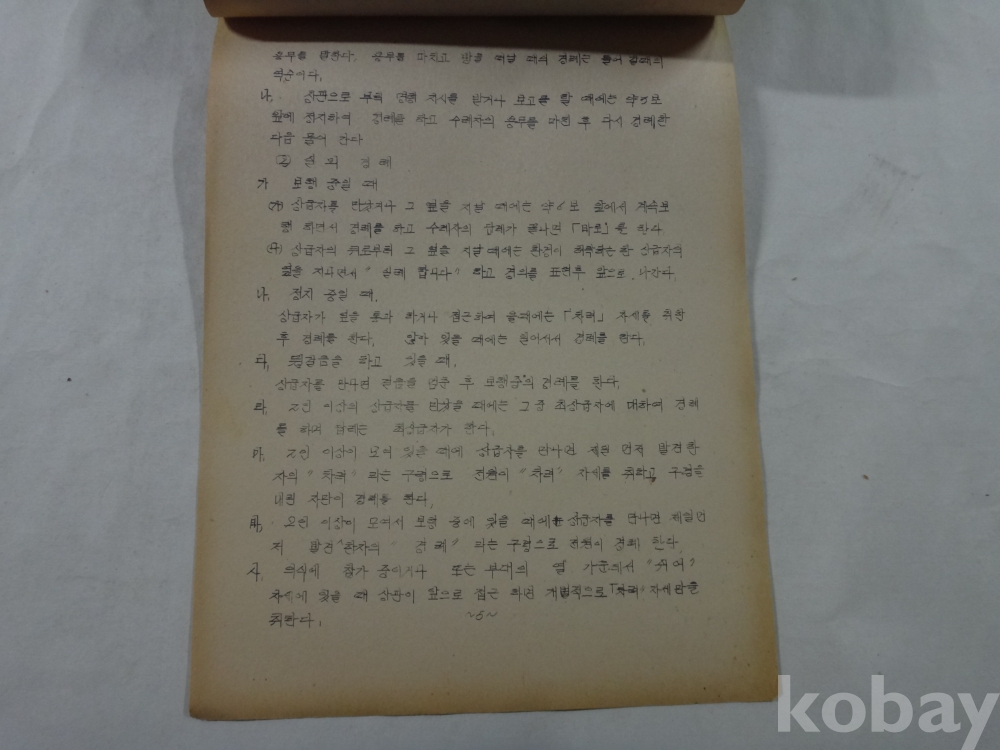 용무를 말한다. 용무를 마치고 방을 나갈 때의 경례는 들어 올때의
역순이다.
나. 상관으로 부터 명령 지시를 받거나 보고를 할 때에는 약 보로
앞에 정지하여 경례를 하고 수례자의 용무를 마친 후 다시 경례한
다음 돌아 간다
실 외 경 례
가 보행 중일 때
㉮ 상급자를 만났거나 그 옆을 지날 때에는 약 보 앞에서 계속보
행 하면서 경례를 하고 수례자의 답례가 끝나면 「바로」를 한다
㉯ 상급자의 뒤로부터 그 옆을 지날 때에는 상급자의
옆을 지나면서 " 실례 합니다" 하고 경의를 표한후 앞으로 나간다.
나. 정지 중일 때.
상급자가 옆을 통과 하거나 접근하여 올때에는 「차려」 자세를 취한
후 경례를 한다. 앉아 있을 때에는 일어서서 경례를 한다.
다. 뜀걸음을 하고 있을 때.
상급자를 만나면 걸음을 멈춘 후 보행중의 경례를 한다.
라. 2인 이상의 상급자를 만났을 때에는 그중 최상급자에 대하여 경례
를 하며 답례는 최상급자가 한다.
마. 2인 이상이 모여 있을 때에 상급자를 만나면 제일 먼저 발견한
자의 "차려" 라는 구령으로 전원이 "차려" 자세를 취하고 구령을
내린 자만이 경례를 한다.
바. 2인 이상이 모여서 보행 중에 있을 때에는 상급자를 만나면 제일먼
저 발견한자의 " 경례" 라는 구령으로 전원이 경례 한다.
사. 의식에 참가 중이거나 또는 부대의 열 가운데서 "쉬어"
자세에 있을 때 상관이 앞으로 접근 하면 개별적으로 「차려" 자세만을
취한다.
~6~
kobay